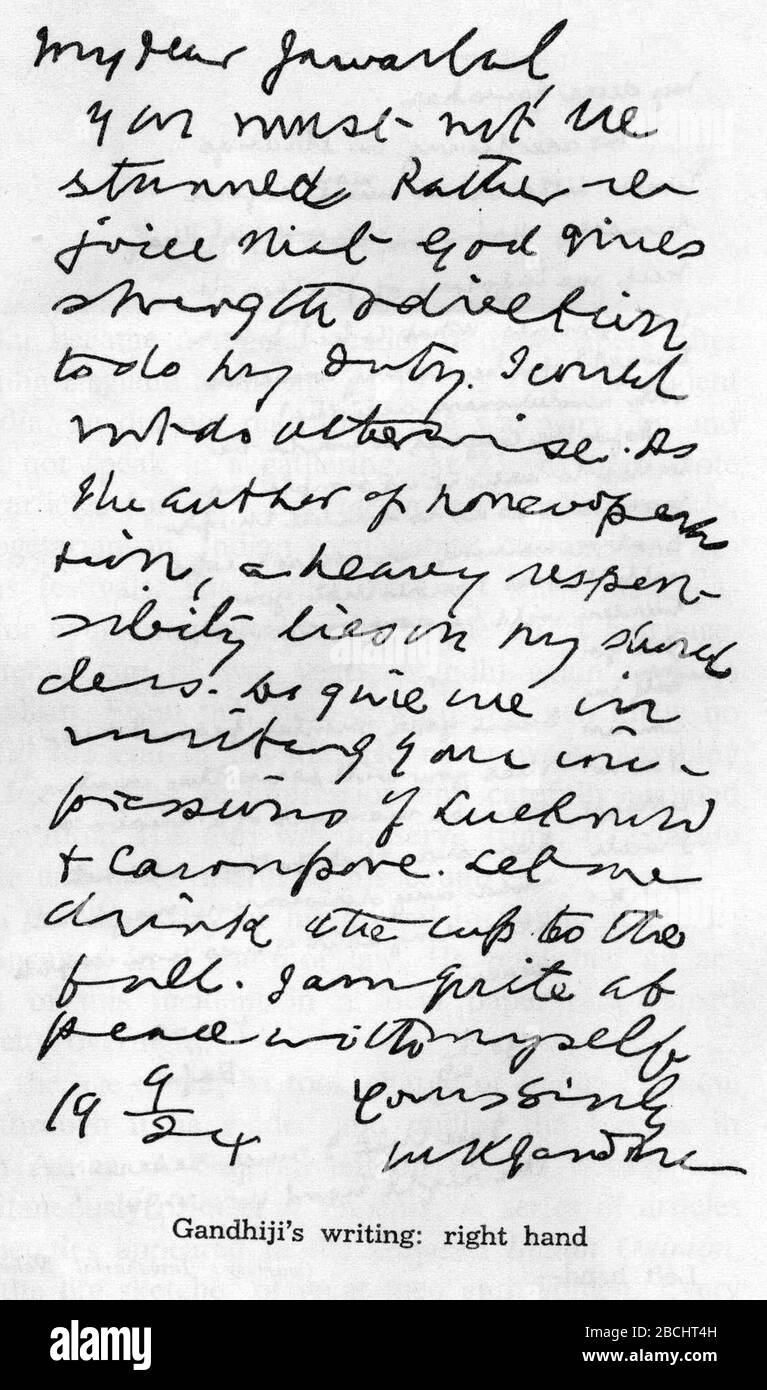 My dear Jawaharlal,
You must not be
stunned. Rather re
joice that God gives
strength & direction
to do my duty. I could
not do otherwise. As
the author of noncoopera
tion, a heavy respon-
sibility lies on my shoul
ders. Do give me in
writing your im-
pressions of Lucknow
& Cawnpore. Let me
drink the cup to the
full. I am quite at
peace with myself.
Yours sincly
19 9/24
MKGandhi
Gandhiji's writing: right hand
alamy
Image ID: 2BCHT4H
www.alamy.com